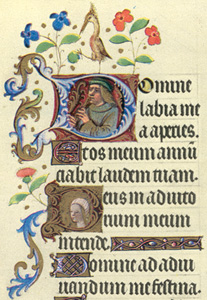 Domine
labia me
a aperies.
Et os meum annū
ciabit laudem tuam.
Deus in adiuto
rium meum
intende.
Domine ad adiu
uandum me festina.